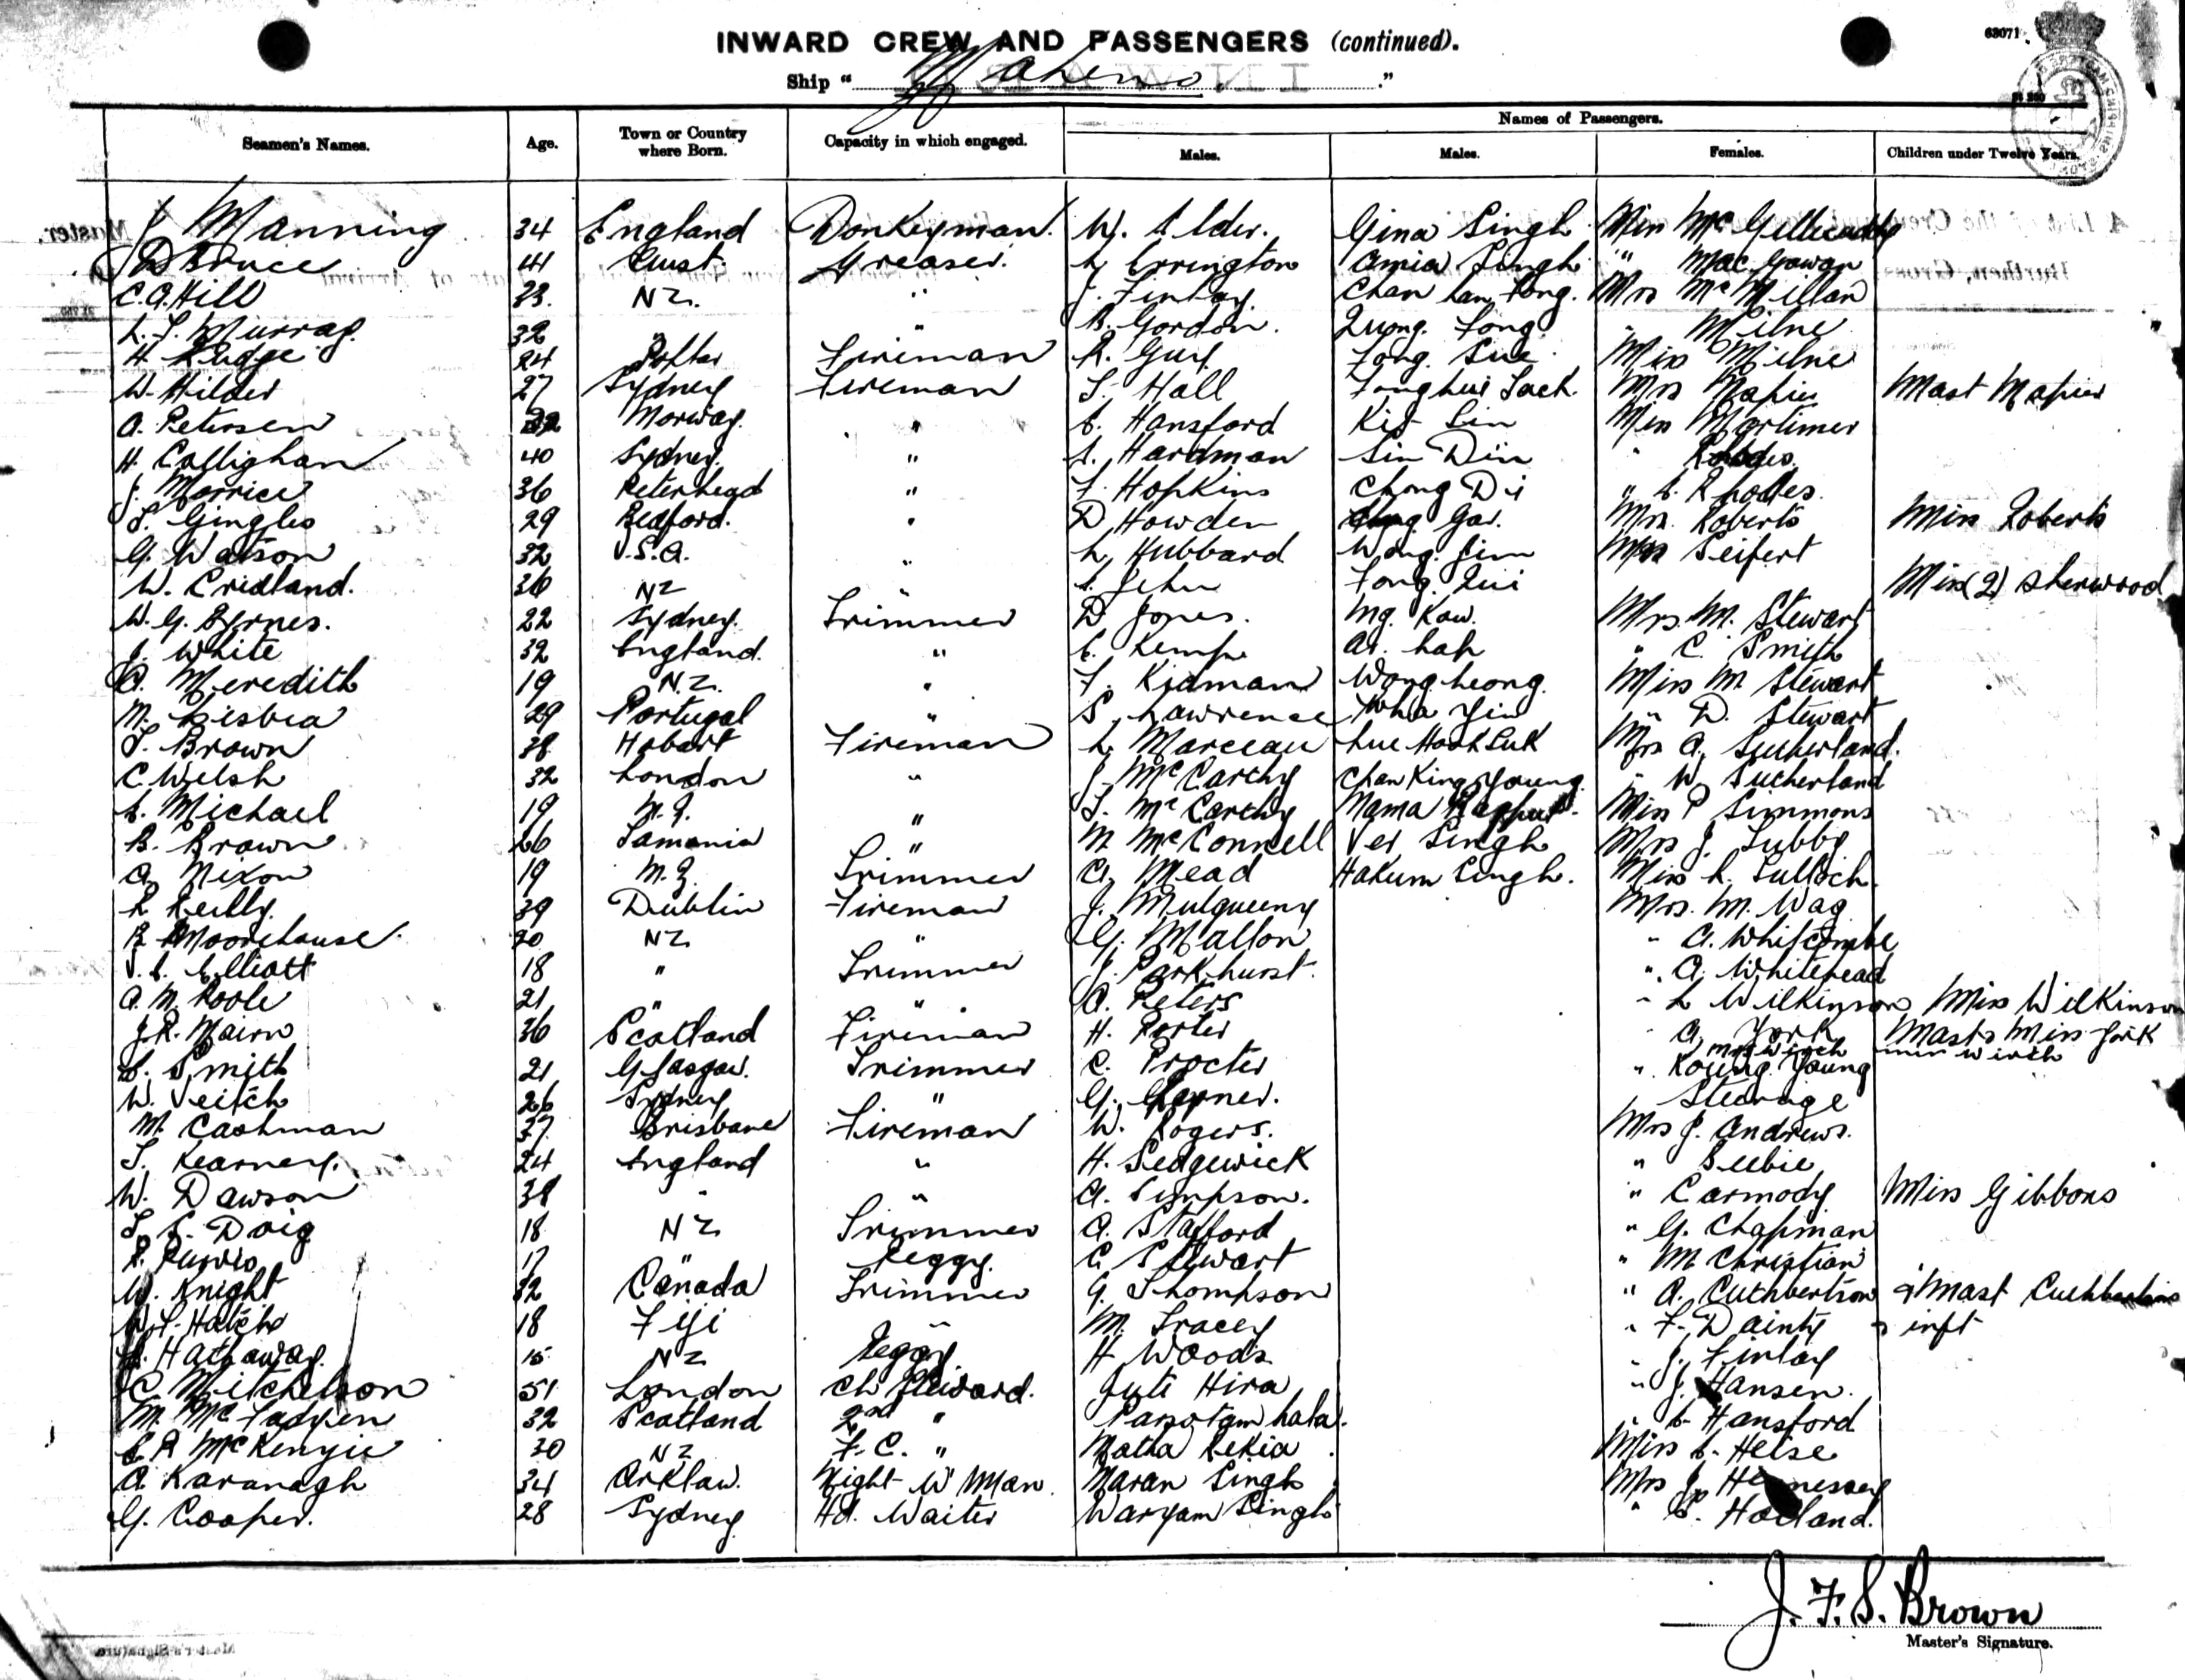 63071
INWARD CREW AND PASSENGERS (continued).
Ship " Maheno "
Names of Passengers.
Seamen's Names. Age. Town or Country where Born. Capacity in which engaged. Males. Males. Females. Children under Twelve Years.
J Manning 34 England Donkeyman. W. Elder. Gina Singh Miss
D Bruce 41 Aust. Greaser. L Errington Amia Singh " MacGowan
C. A. Hill 23. NZ. " J. Finlay. Chan han Fong. Mrs McMillan
L. J. Murray. 32 " " B. Gordon. Quong. Fong. " Milne
H Rudge 24 Fireman R. Guy Fong. Sue. Miss Milne
W. Hilder 27 Sydney Fireman T. Hall Fonghui Jack. Mrs Napier Mast Napier
A. Petersen 32 Norway. " E. Hansford Kit Sin Miss Mortimer
H. Callighan 40 Sydney. " A. Hardman Sin Din "
J. Morrice 36 Peterhead " F. Hopkins Chong Di " E. Rhodes.
T. Gingles 29 Bedford. " D Howden Gar. Mrs. Roberts Miss Roberts
G. Watson 32 U.S.A. " L Hubbard Wong. Jim Mrs Seifert
W. Cridland. 36 NZ " John Fong. Qui Miss (2) Sherwood
W. G. Byrnes. 22 Sydney. Trimmer D Jones. Mg. Kow. Mrs. M. Stewart
J. White 32 England. " E. Kemp. Ar. hap " C. Smith
A. Meredith 19 N.Z. " F. Kidman Wong heong. Miss M. Stewart
M. Lisbia 29 Portugal " S. Lawrence Wha Yin " D. Stewart
T. Brown 38 Hobart Fireman L. Marceau Lue Hook Suk Mrs A. Sutherland.
C Welsh 32 London " J. McCarthy Chan King Young " W. Sutherland
E. Michael 19 N.Z. " T. McCarthy Nama Miss P Simmons
B. Brown 26 Tasmania " M McConnell Ver Singh Mrs J. Tubby
A. Nixon 19 N.Z. Trimmer A. Mead Hakum Singh. Miss L. Tulloch.
L Reilly. 39 Dublin Fireman J. Mulqueeny Mrs. M. Wag
R Moorehouse. 20 NZ " G. Mallon " A. Whitcombe
E. Elliott 18 " Trimmer J. Parkhurst. " A. Whitehead
A. M. Poole 21 " " A. Peters " L Wilkinson Miss Wilkinson
J. R. Mairn 36 Scotland Fireman H. Porter " A. York Mast & Miss York
Mrs Winch Miss Winch
S. Smith 21 Glasgow. Trimmer C. Procter " Young
W. Veitch 26 Sydney " G. Steerage
M. Cashman 37 Brisbane Fireman W. Rogers. Mrs J. Andrews.
T. Kearney. 24 England " H. Sedgewick " Beebie
W. Dawson 38 " " A. Simpson. " Carmody Miss Gibbons
T. S. Doig 18 NZ Trimmer A. Stafford " G. Chapman
R. Purvis 17 " Peggy. C. Stewart " M Christian
W. Knight 32 Canada Trimmer G. Thompson " A. Cuthbertson & Mast Cuthbertson
W. F. Hatch 18 Fiji " M. Tracey " F. Dainty & inft
Hathaway. 15 NZ Peggy H Woods " J. Finlay
C. Mitchelson 51 London Ch Steward. Juti Hira " J. Hansen.
M. McFadyen 32 Scotland 2nd " Parsotam hala. " E. Hansford
E R McKenzie 30 NZ F. C. " Matha Rekia Miss E. Heise
A Kavanagh 34 Arklow. Night W Man. Naran Singh Mrs J. Hennessey
G. Cooper. 28 Sydney Hd. Waiter Waryam Singh " E. Holland.
J. F. S. Brown
Master's Signature.